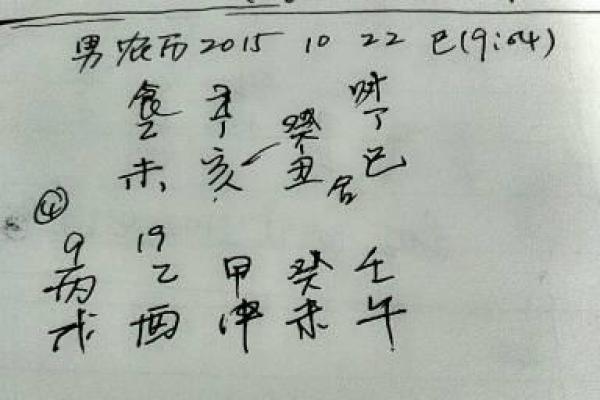 男 农历 2015 10 22 巳(9:04)
食 才 财
乙 丁 癸 丁
未 亥 丑 合 巳
④
9 19
丙 乙 甲 癸 壬
戌 酉 申 未 午